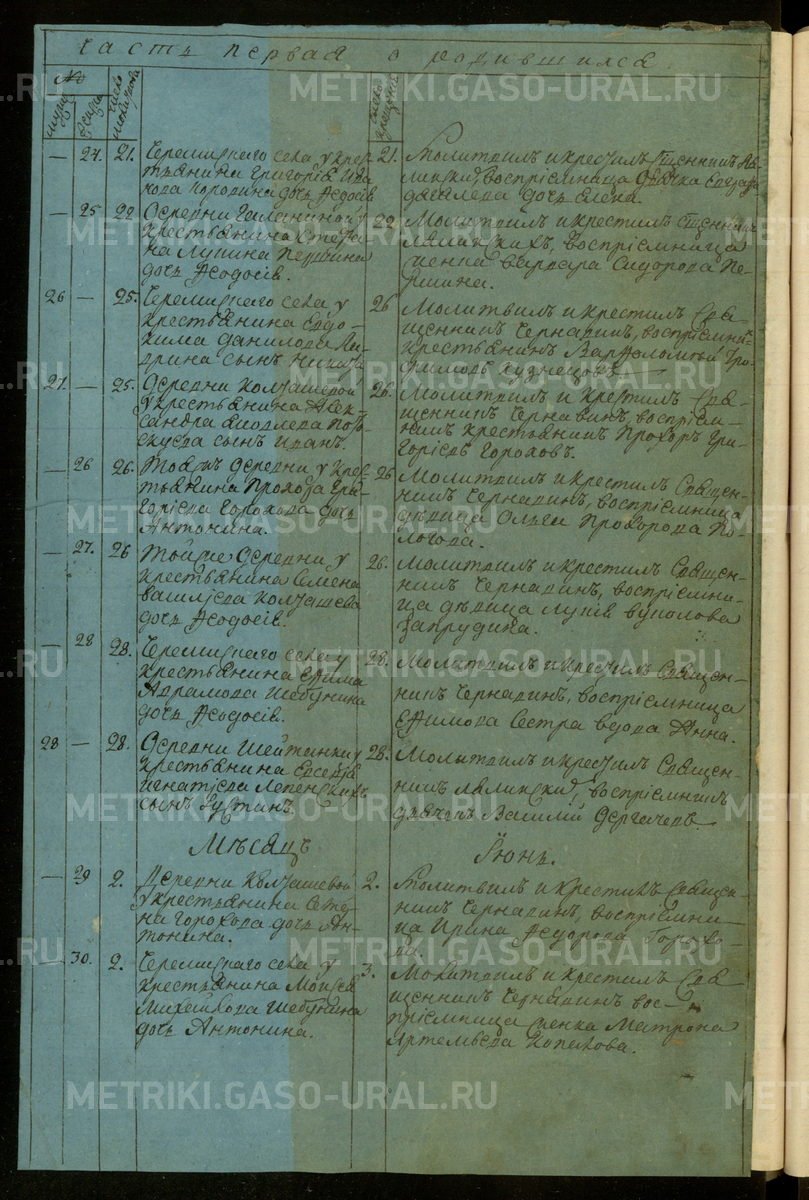 Часть первая о родившихся
№
мужеска
женска
число
число крещенія
— 24. 21. Черемисскаго села у крес-
тьянина Григорія Ива-
нова дочь Ѳедосія
21. Молитвилъ и крестилъ священникъ
воспріемница
дочь Елена.
— 25 22 Деревни Галаниной у
крестьянина Стефа-
на Лупина Першина
дочь Ѳеодосія.
22 Молитвилъ и крестилъ священникъ
воспріемница
женка Варвара Сидорова Пе-
ршина.
26 — 25. Черемисскаго села у
крестьянина Евдо-
кима Данилова
сынъ Никита
26 Молитвилъ и крестилъ Свя-
щенникъ Чернавинъ, воспріемникъ
крестьянинъ Варѳоломей Тро-
фимовъ Кузнецовъ
27. — 25. Деревни Колташевой
у крестьянина Алек-
сандра
сынъ Иванъ.
26. Молитвилъ и крестилъ Свя-
щенникъ Чернавинъ, воспріем-
никъ крестьянинъ Прохоръ Гри-
горьевъ Гороховъ.
— 26 26. Тоя жъ деревни у крес-
тьянина Прохора Гри-
горіева Горохова дочь
Антонина.
26 Молитвилъ и крестилъ Священ-
никъ Чернавинъ, воспріемница
дѣвица Ольга Прохорова По-
логова.
— 27. 26 Той же деревни у
крестьянина Семена
Василіева Колташева
дочь Ѳеодосія.
26. Молитвилъ и крестилъ Священ-
никъ Чернавинъ, воспріемни-
ца дѣвица Лукія Вуколова
Запрудина.
— 28 28. Черемисскаго села у
крестьянина Ефима
Абрамова Шебунина
дочь Ѳеодосія.
28. Молитвилъ и крестилъ Священ-
никъ Чернавинъ, воспріемница
Ефимова Сестра вдова Анна.
28 — 28. Деревни Шейтанки у
крестьянина Евсевія
Игнатіева Лепенскихъ
сынъ Іустинъ.
28. Молитвилъ и крестилъ Священ-
никъ воспріемникъ
дьячекъ Василій Дергачевъ
Мѣсяцъ Іюнь.
— 29 2. Деревни Колташевой
у крестьянина Степа-
на Горохова дочь Ан-
тонина.
2. Молитвилъ и крестилъ Священ-
никъ Чернавинъ, воспріемни-
ца Ирина Ѳедорова Горохо-
ва.
— 30. 2. Черемисскаго села у
крестьянина Моисея
Михейлова Шебунина
дочь Антонина.
3. Молитвилъ и крестилъ Свя-
щенникъ Чернавинъ вос-
пріемница женка Матрона
Артемьева Копалова.
METRIKI.GASO-URAL.RU